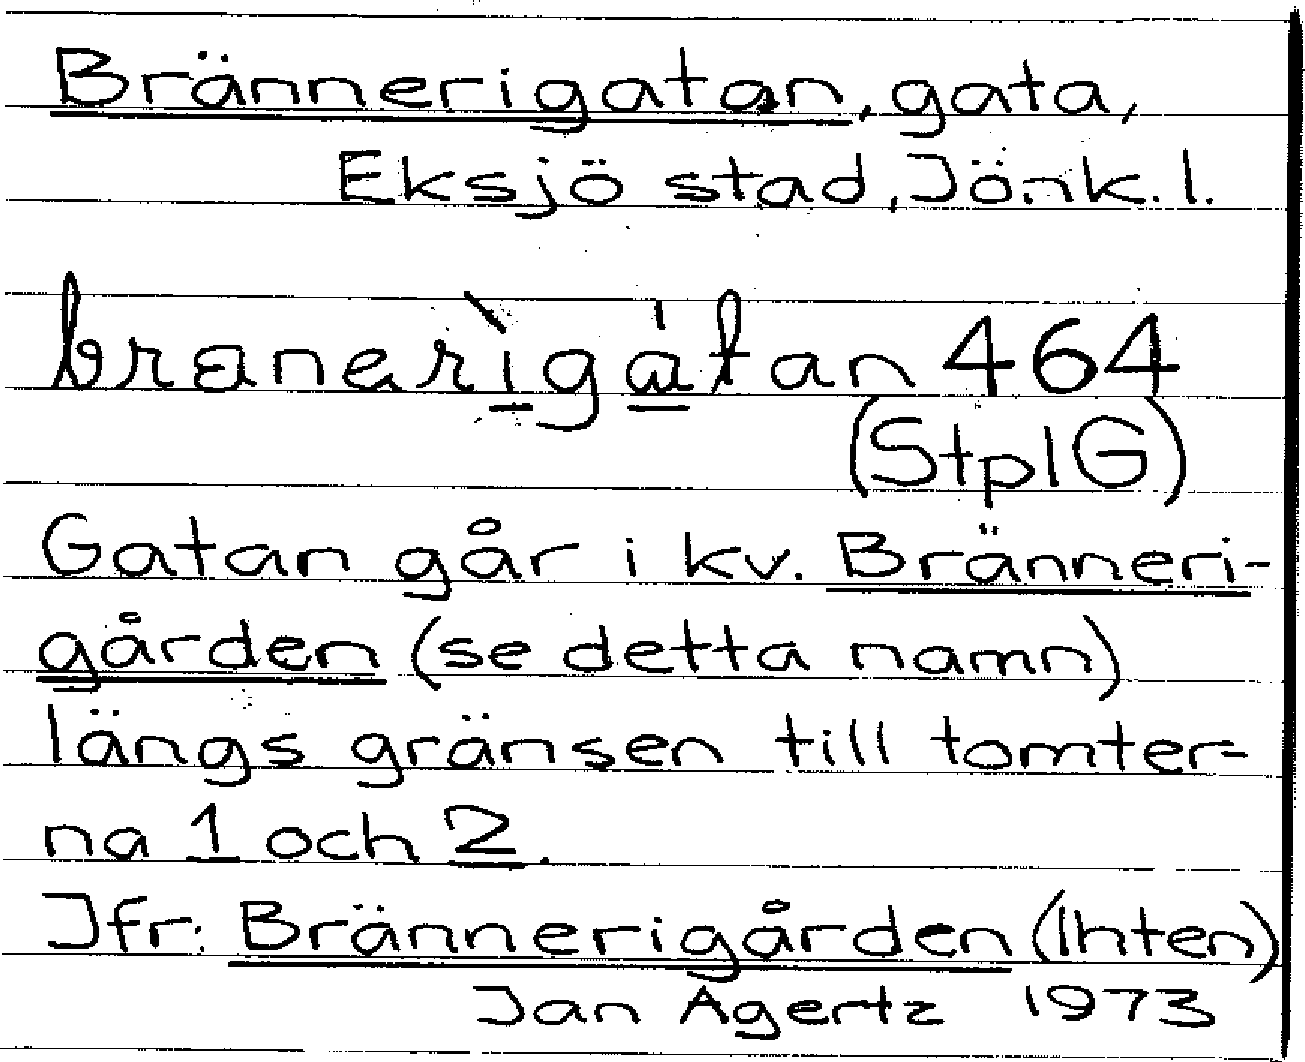 Brännerigatan, gata,
Eksjö stad, Jönk. l.
branerìgátan 464
(StplG)
Gatan går i kv. Bränneri-
gården (se detta namn)
längs gränsen till tomter=
na 1 och 2.
Jfr: Brännerigården (Inten)
Jan Agertz 1973